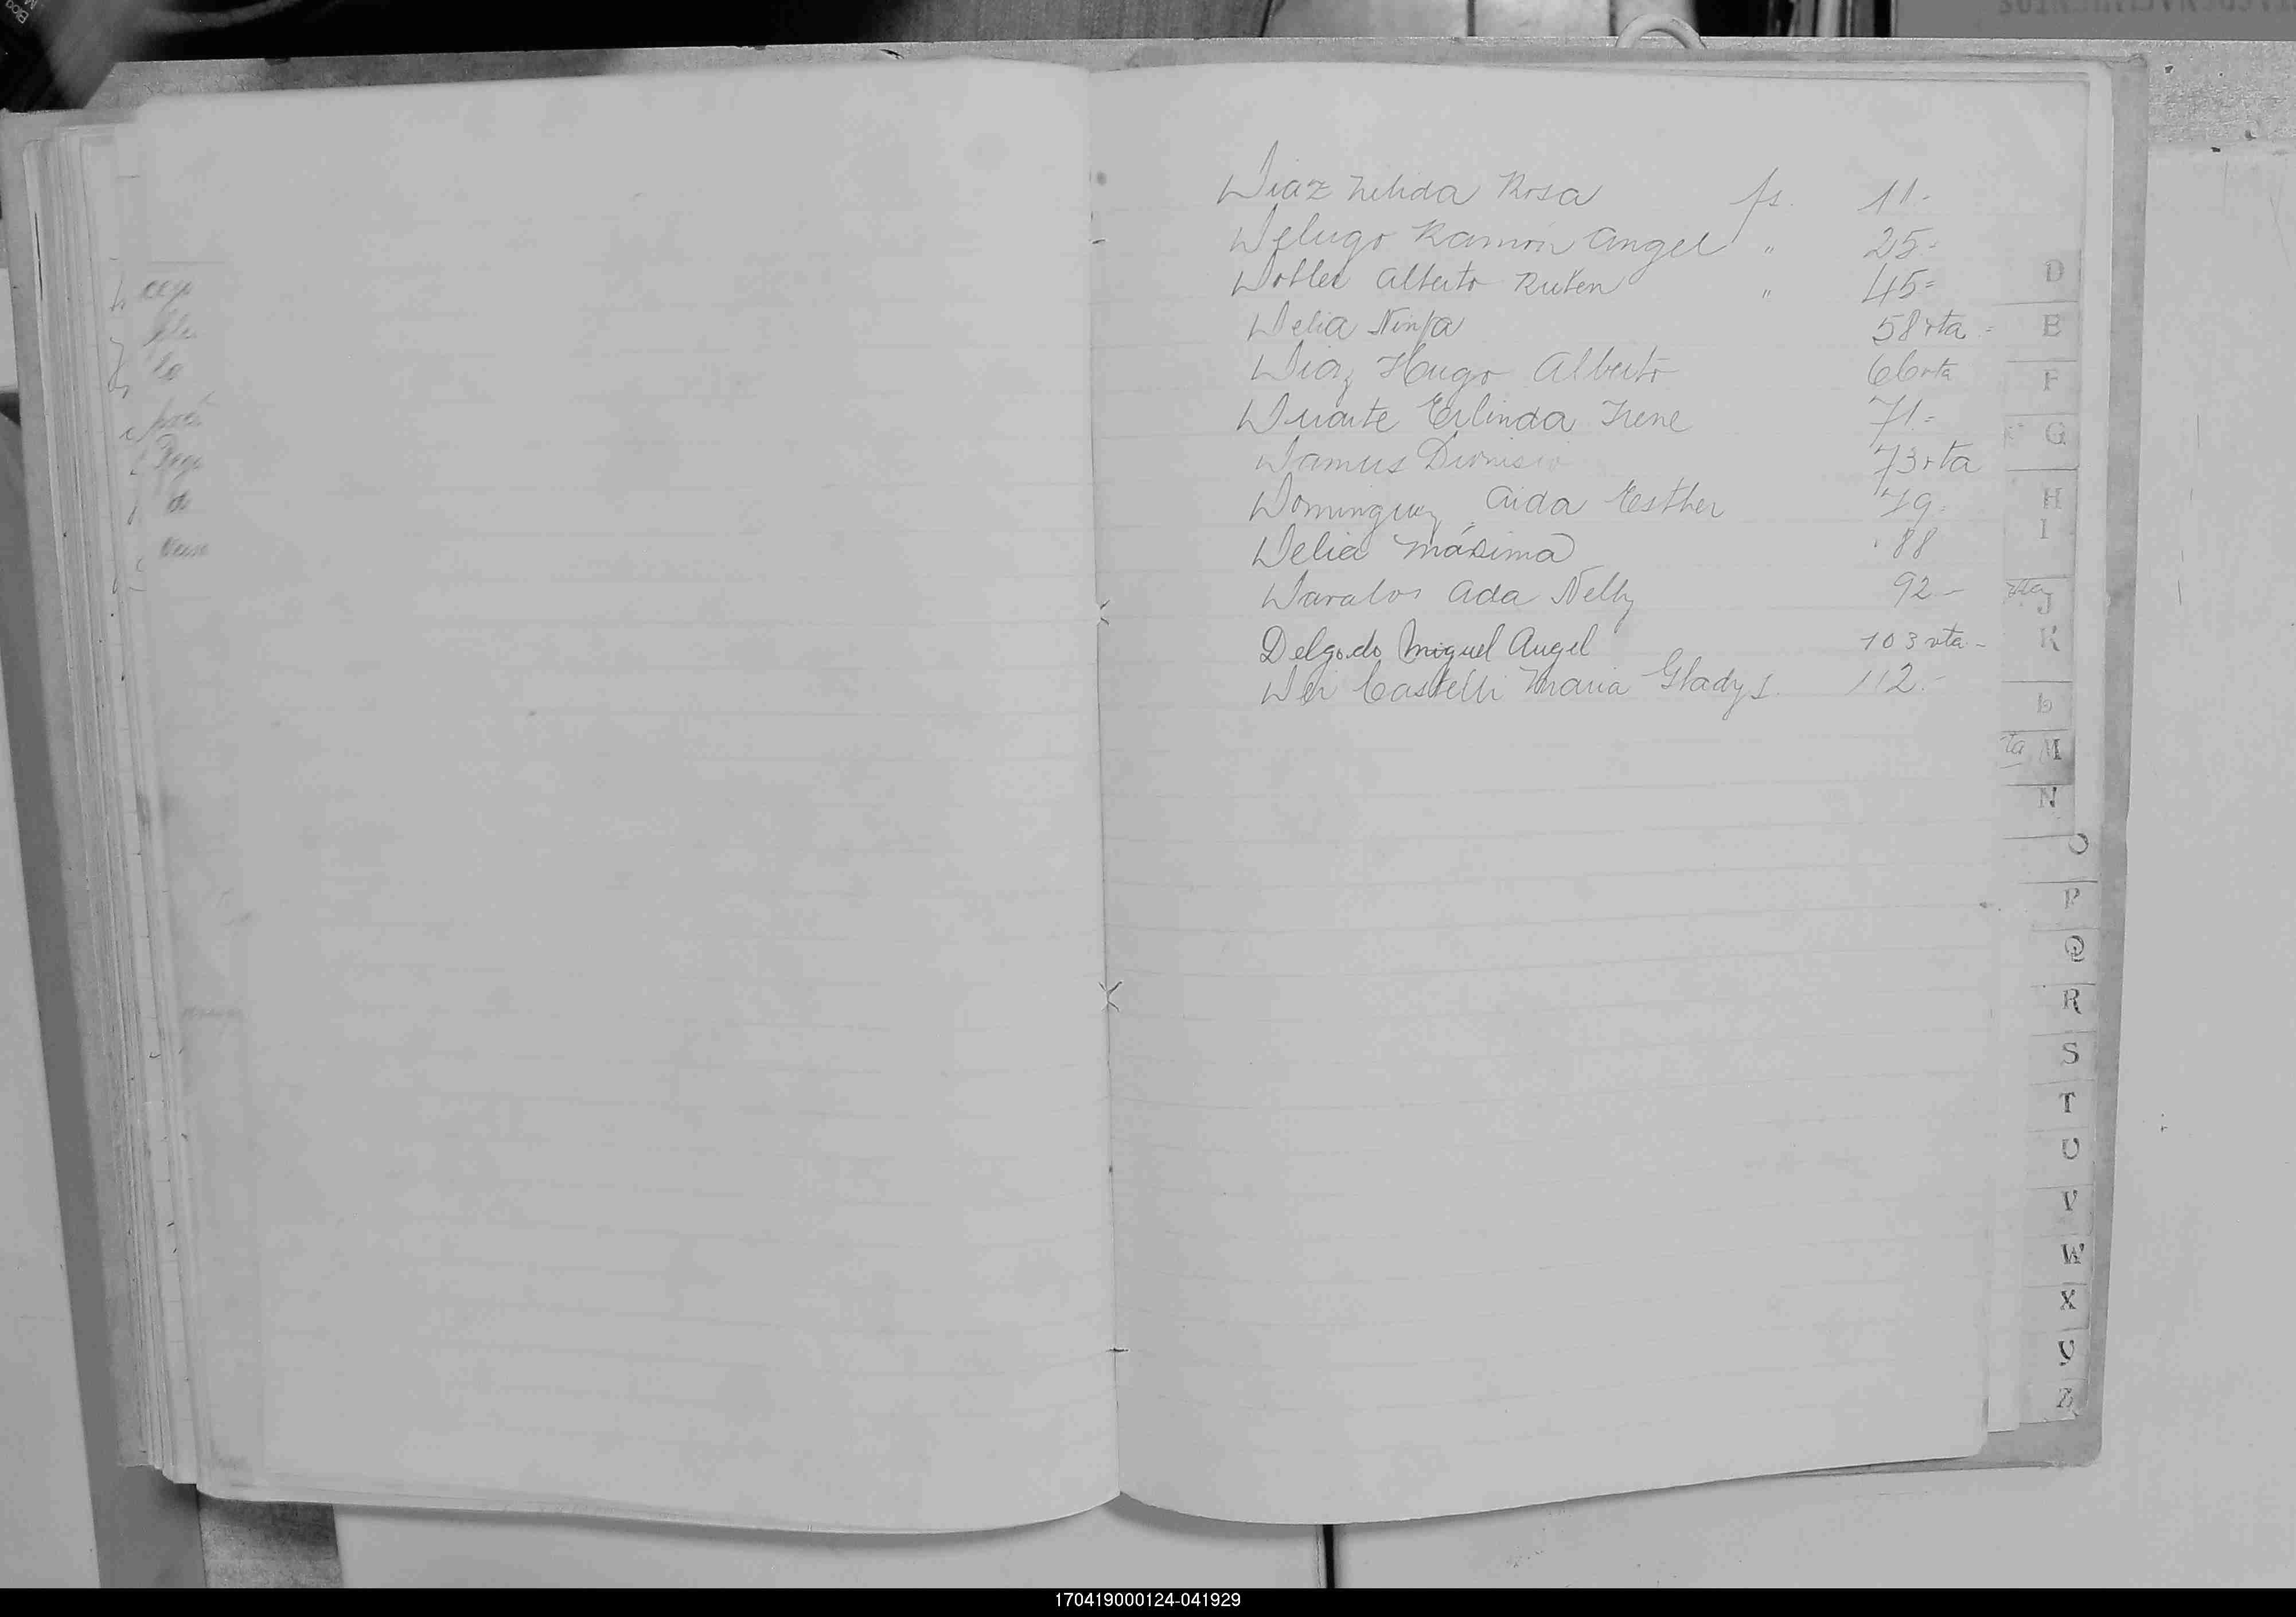 Diaz Nelida Rosa fs. 11.-
Delugo Ramón Angel " 25.-
Dobler Alberto Ruben " 45=
Delia Ninfa 58 vta.-
Diaz Hugo Alberto 66 vta
Duarte Erlinda Irene 71.-
Damus Dionisio 73 vta
Dominguez Aida Esther 79.
Delia Máxima 88
Davalos Ada Nelly 92.-
Delgado Miguel Angel 103 vta-
Der Castelli Maria Gladys. 112.-
D
E
F
G
H
I
J
K
L
M
N
O
P
Q
R
S
T
U
V
W
X
Y
Z
170419000124-041929